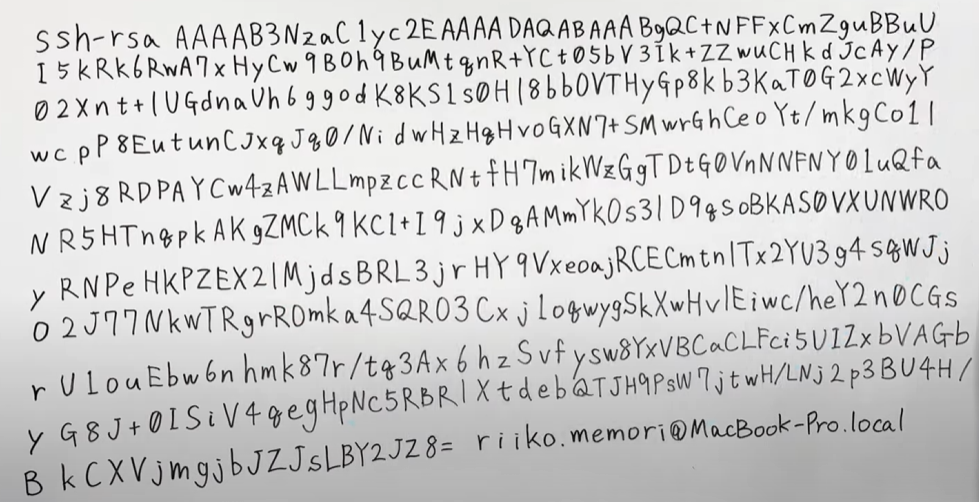 ssh-rsa AAAAB3NzaC1yc2EAAAADAQABAAABgQC+NFFxCmZguBBuU
I5kRk6RwA7xHyCw9BOh9BuMtqnR+YCt05bV3Ik+ZZwuCHkdJcAy/P
02Xnt+lUGdnaUh6ggodK8KS1s0Hl8bbOVTHyGp8kb3KaT0G2xcWyY
wcpP8EutunCJxqJq0/NidwHzHqHvoGXN7+SMwrGhCeoYt/mkgCo1l
Vzj8RDPAYCw4zAWLLmpzccRNtfH7mikWzGgTDtG0VnNNFNY01uQfa
NR5HTnqpkAKgZMCk9KCl+I9jxDqAMmYkOs3lD9qsoBKAS0VXUNWRO
yRNPeHKPZEX2lMjdsBRL3jrHY9VxeoajRCECmtnlTx2YU3g4sqWJj
O2J77NkwTRgrROmka4SQRO3Cxj1oqwygSkXwHvlEiwc/heY2n0CGs
rU1ouEbw6nhmk87r/tq3Ax6hzSvfysw8YxVBCaCLFci5UIZxbVAGb
yG8J+0ISiV4qegHpNc5RBRlXtdebQTJH9PsW7jtwH/LNj2p3BU4H/
BkCXVjmgjbJZJsLBY2JZ8= riiko.memori@MacBook-Pro.local